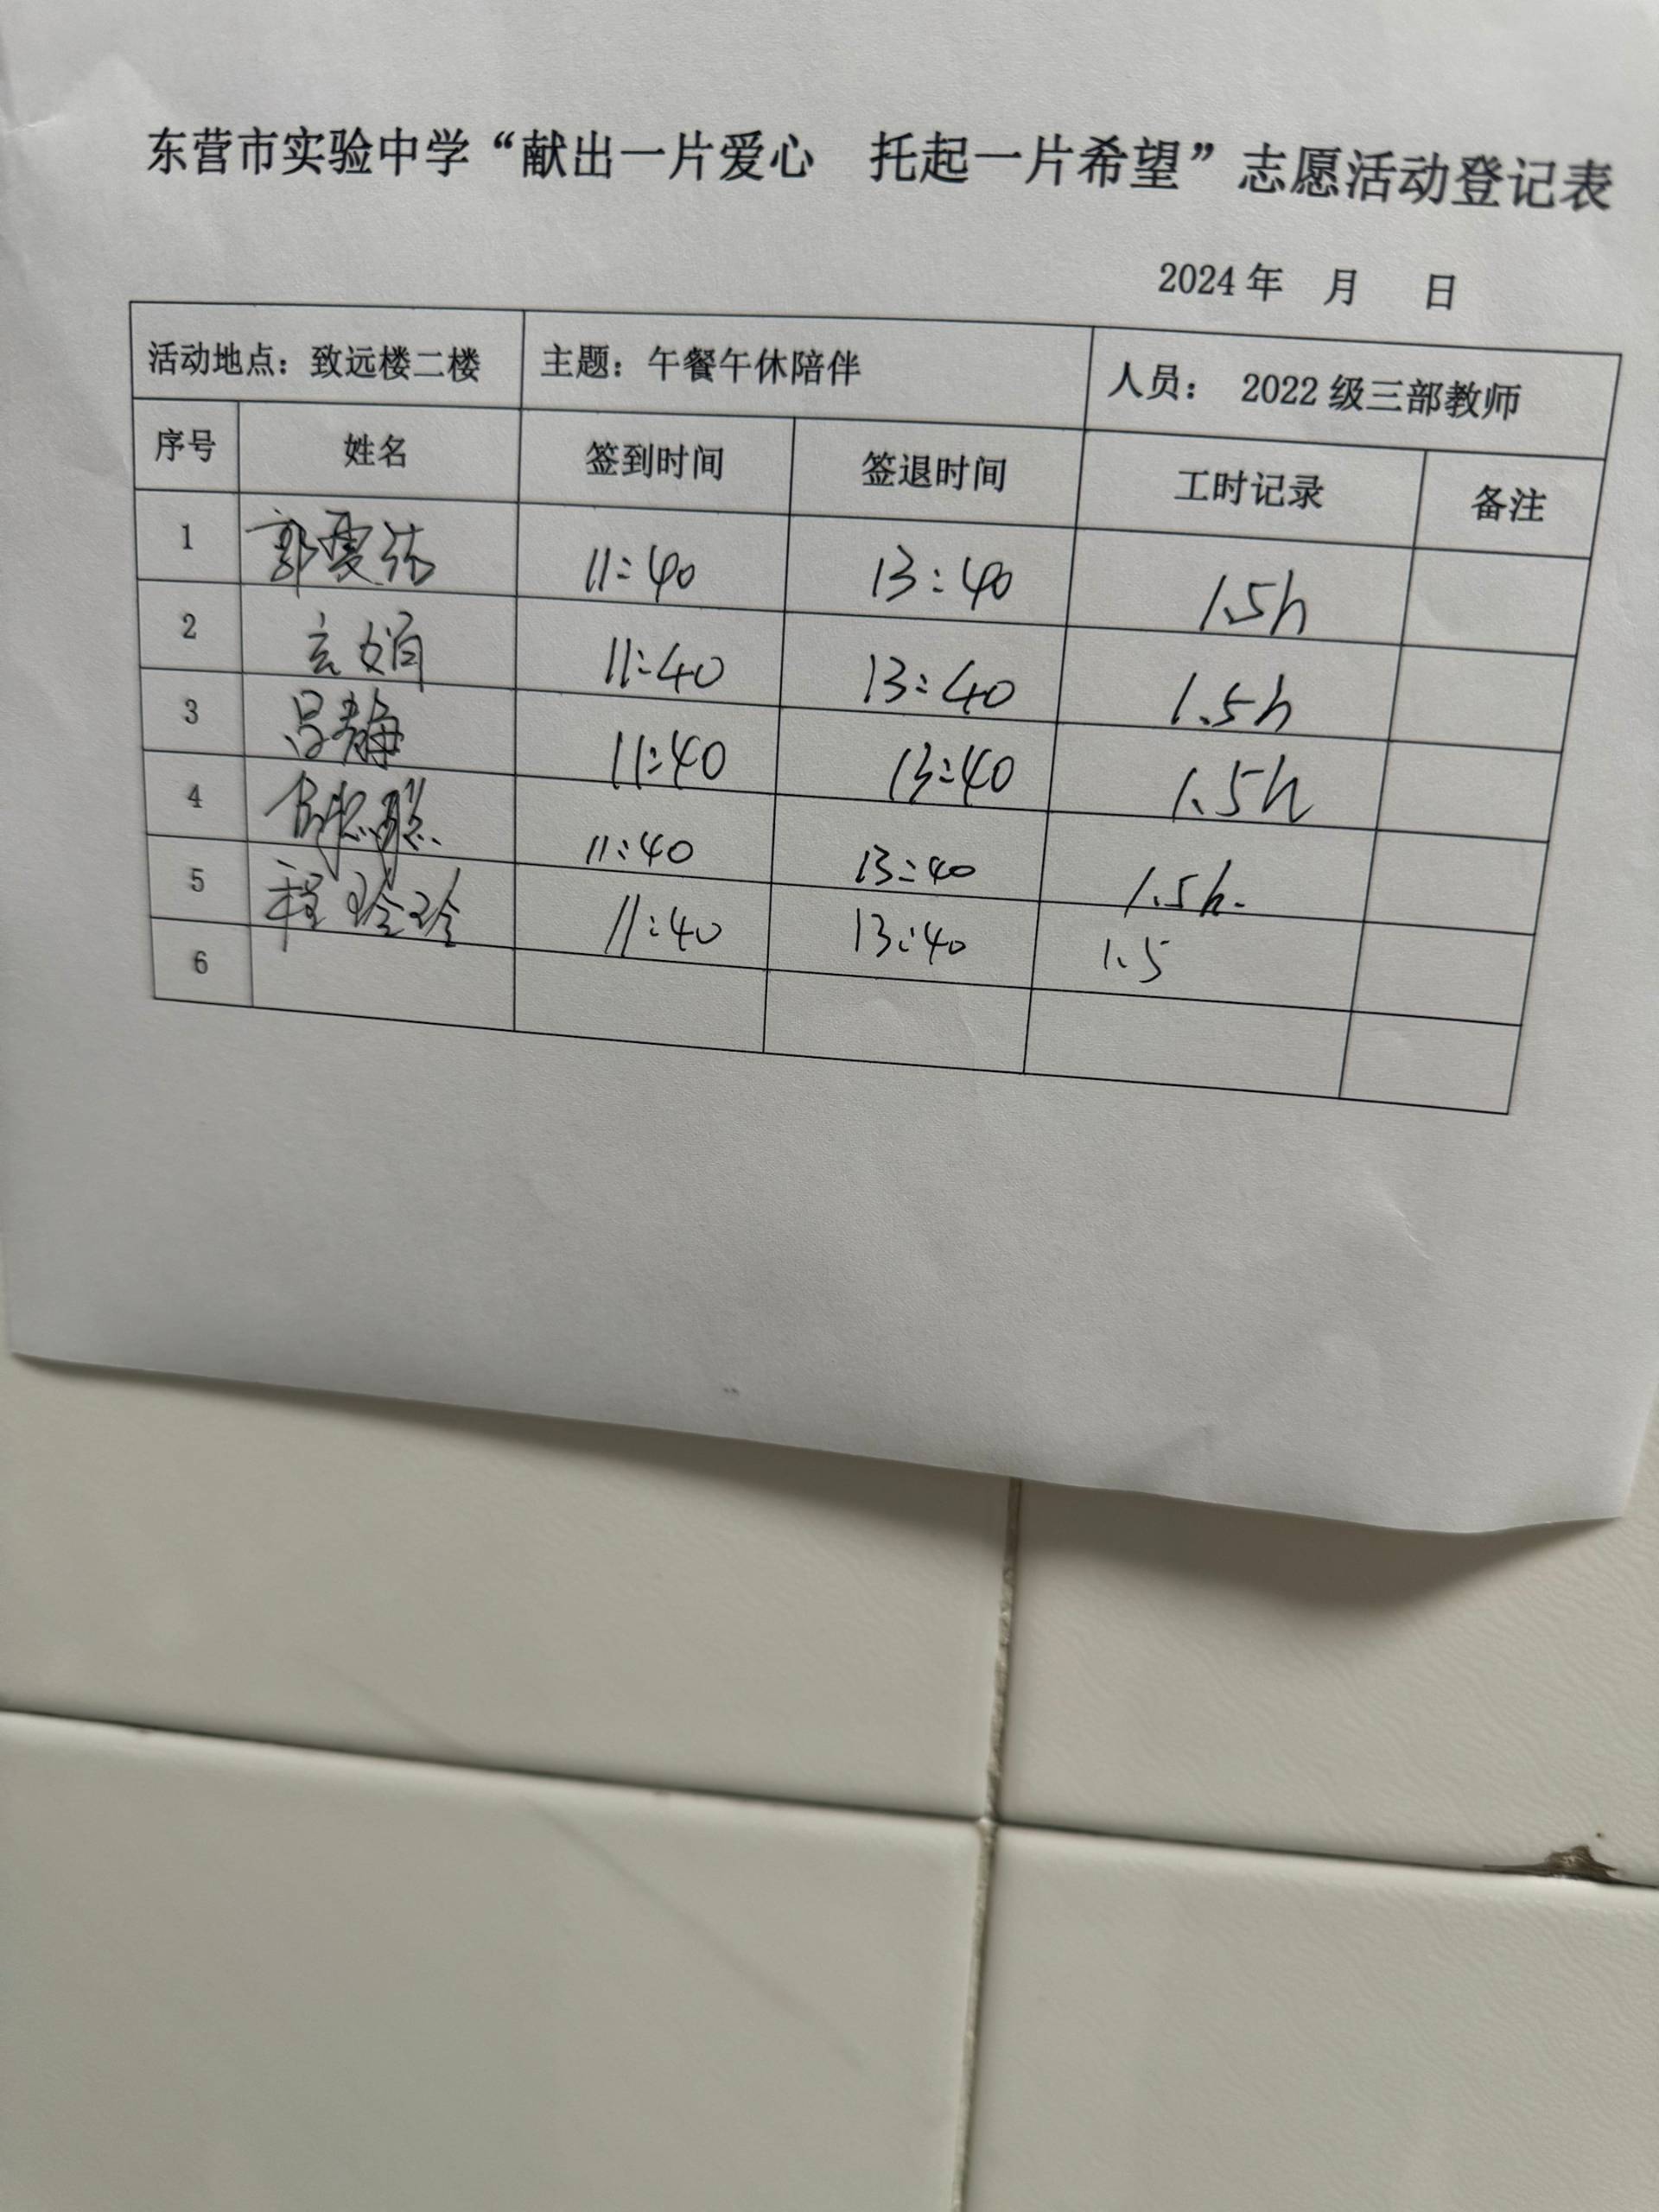 东营市实验中学“献出一片爱心 托起一片希望”志愿活动登记表
2024年 月 日
活动地点：致远楼二楼 主题：午餐午休陪伴 人员： 2022级三部教师
序号 姓名 签到时间 签退时间 工时记录 备注
1 郭雯洁 11:40 13:40 1.5h
2 玄娟 11:40 13:40 1.5h
3 吕静 11:40 13:40 1.5h
4 11:40 13:40 1.5h.
5 程玲玲 11:40 13:40 1.5
6